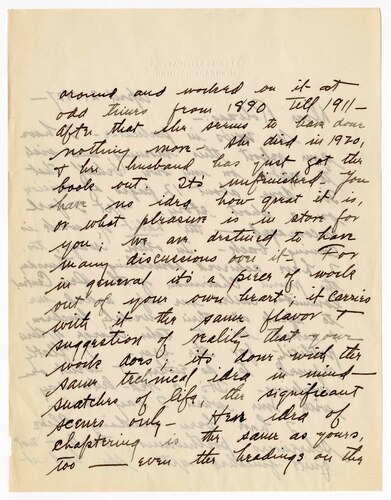 around and worked on it at
odd times from 1890 till 1911—
after that she seems to have done
nothing more— she died in 1920,
& her husband has just got the
book out. It's unfinished. You
have no idea how great it is,
or what pleasure is in store for
you; we are destined to have
many discussions over it— For
in general it's a piece of work
out of your own heart; it carries
with it the same flavor &
suggestion of reality that your
work does; it's done with the
same technical idea in mind—
snatches of life, the significant
scenes only— Her idea of
chaptering is the same as yours,
too — even the headings on the